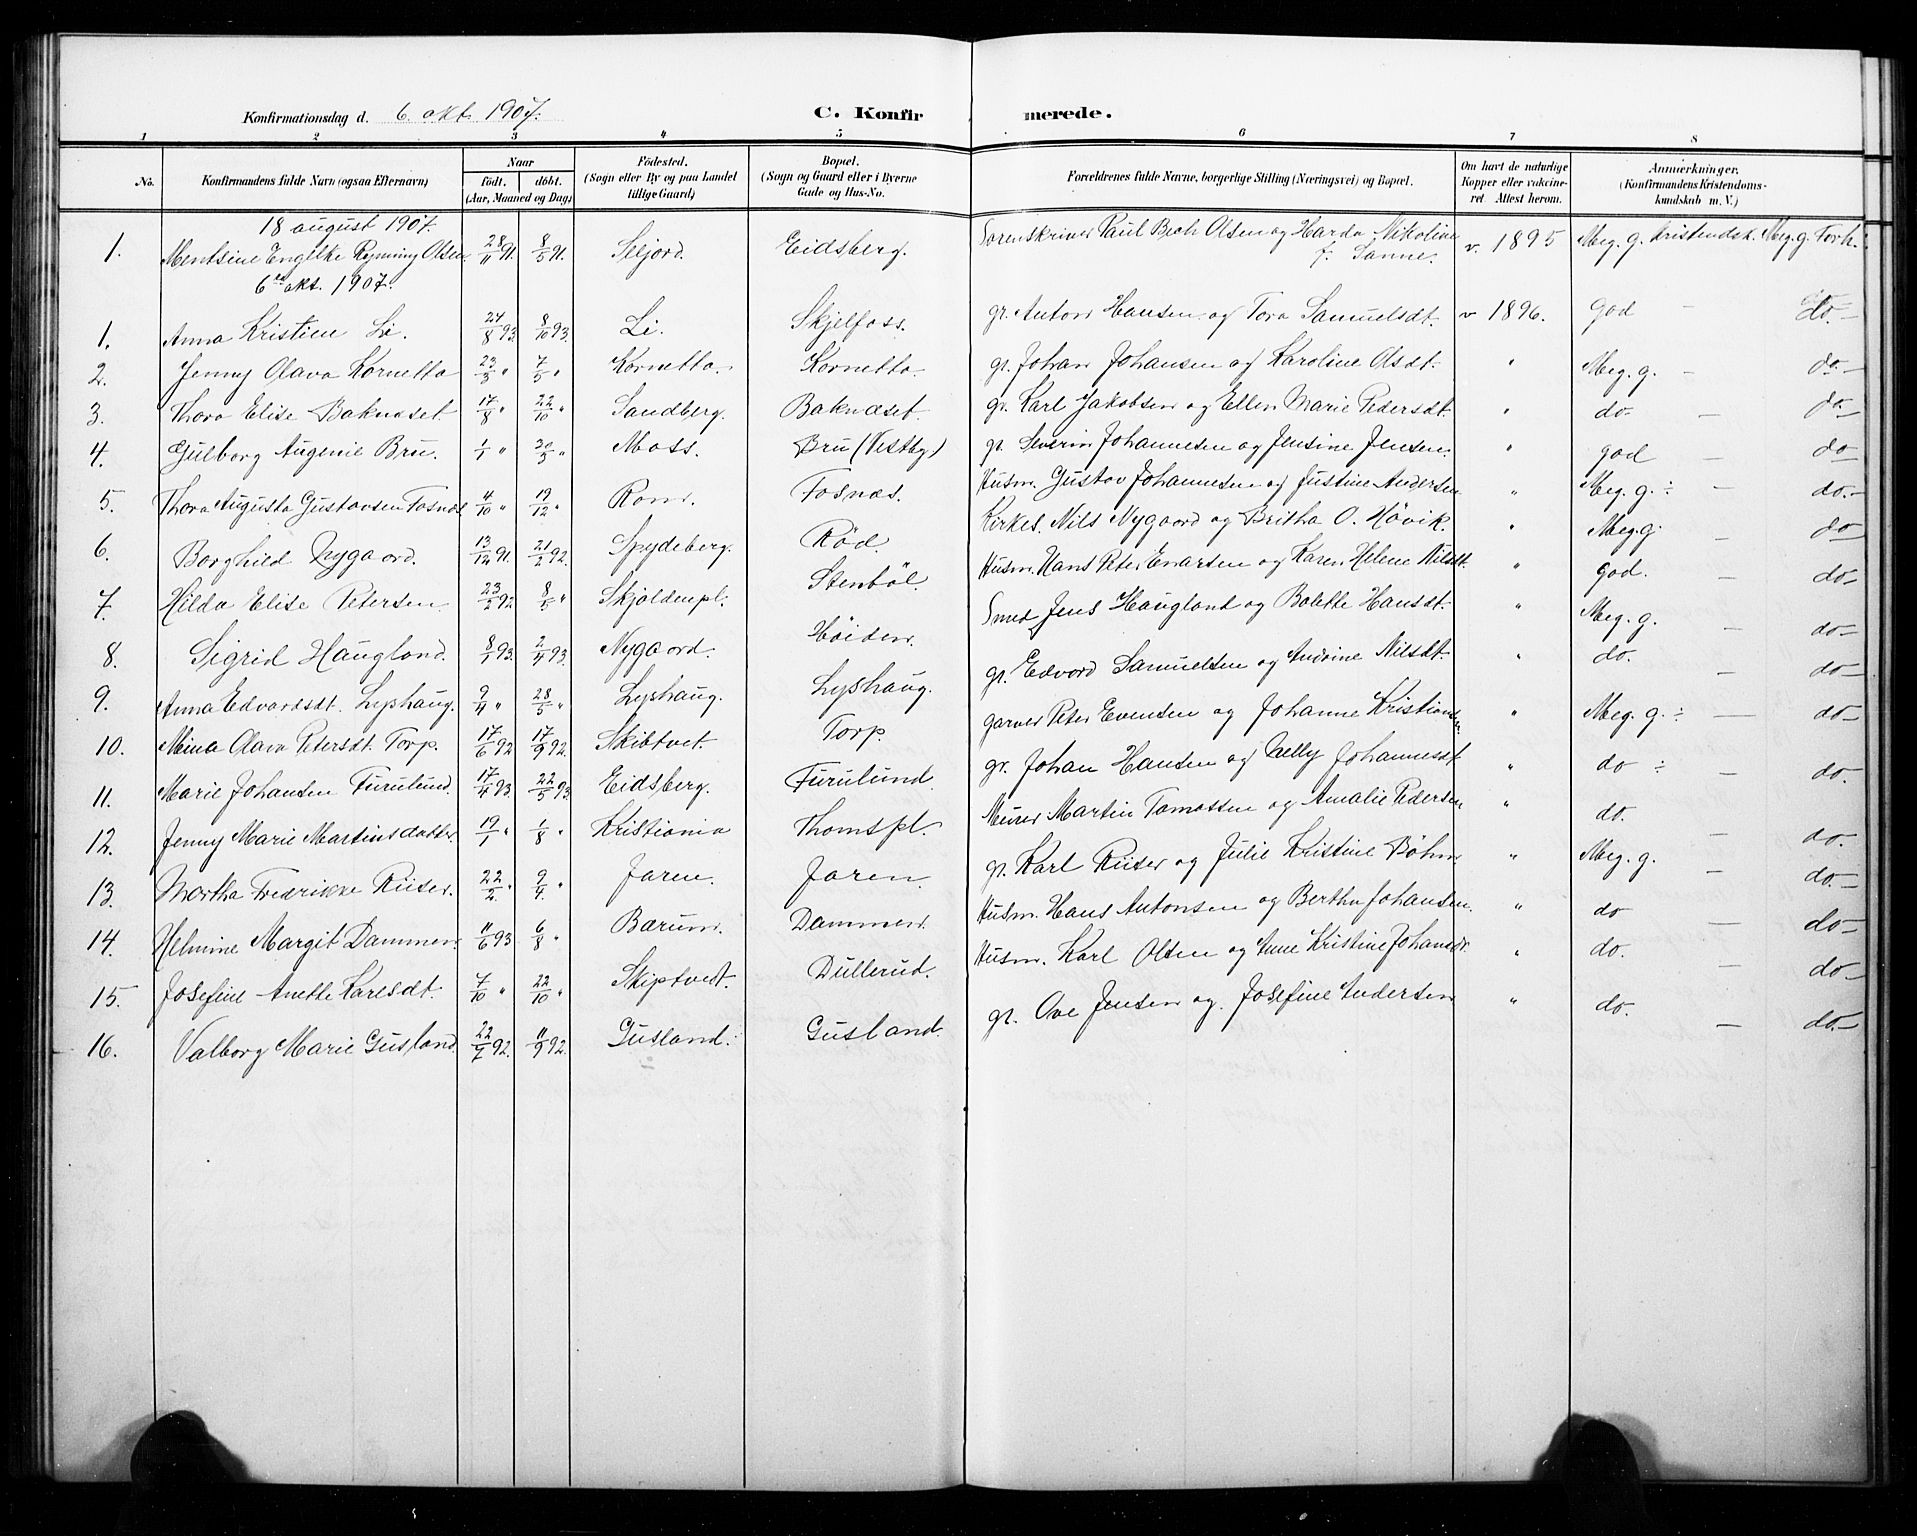 Konfirmationsdag d. 6. okt. 1907. C. Konfirmerede.
1 2 3 4 5 6 7 8
No. Konfirmandens fulde Navn (ogsaa Efternavn) Naar født. døbt. (Aar, Maaned og Dag) Fødested. (Sogn eller By og paa Landet tillige Gaard) Bopæl. (Sogn og Gaard eller i Byerne Gade og Hus-No. Forældrenes fulde Navne, borgerlige Stilling (Næringsvei) og Bopæl. Om havt de naturlige Kopper eller vakcineret. Attest herom. Anmærkninger. (Konfirmandens Kristendomskundskab m. V.)
18 august 1907.
1. Mentsine Engelke Rynning Olsen 28/11 91. 8/5 91. Seljord. Eidsberg. Sorenskriver Paul Olsen og Harda Nikoline f. Sanne. v. 1895 Meg. g. Kristendsk. Meg. g. Forh.
6te okt. 1907.
1. Anna Kristine Li. 24/8 93. 8/10 93. Li. Skjelfoss. gr. Anton Hansen og Tora Samuelsdt. v 1896. god — do. —
2. Jenny Olava Kornetta 23/3 " 7/5 " Kornetta. Kornetta. gr. Johan Johansen og Karoline Olsdt. " Meg. g. — do. —
3. Thora Elise Baknæset. 17/8 " 22/10 " Sandberg. Baknæset. gr. Karl Jakobsen og Ellen Marie Pedersdt. " do. — do —
4. Gulborg Augenie Bru. 1/1 " 30/3 " Moss. Bru (Vestby) gr. Severin Johannesen og Jensine Jensen. " god — do —
5. Thora Augusta Gustavsen Fosnæs 4/10 " 19/12 " Rom. Fosnæs. Husm. Gustav Johannesen og Justine Andersen " Meg. g. ÷ — do. —
6. Borghild Nygaard. 13/12 91. 21/2 92. Spydeberg. Rød. Kirkes. Nils Nygaard og Britha O. Høvik. " Meg. g. do
7. Hilda Elise Petersen 23/2 92. 8/5 " Skjoldenpl. Stenbøl. Husm. Hans Peter Enarsen og Karen Helene Nilsdt. " god. — do —
8. Sigrid Haugland. 8/1 93. 2/4 93. Nygaard. Høiden. Smed Jens Haugland og Bolette Hansdt. " Meg. g. — do —
9. Anna Edvardsdt. Lyshaug. 9/4 " 28/5 " Lyshaug. Lyshaug. gr. Edvard Samuelsen og Andrine Nilsdt. " do. — do —
10. Mina Olava Petersdt. Torp. 17/6 92. 17/9 92. Skibtvet. Torp. garver Peter Evensen og Johanne Kristiansen " Meg. g. ÷ — do —
11. Marie Johansen Furulund. 17/4 93. 22/5 93. Eidsberg. Furulund. gr. Johan Hansen og Nelly Johannesdt " do ÷ — do.
12. Jenny Marie Martinsdatter. 19/1 " 1/8 " Kristiania Thomspl. Murer Martin Tomassen og Amalie Pedersen " do. — do. —
13. Martha Fredrikke Riiser. 22/2 " 9/4 " Jaren. Jaren. gr. Karl Riiser og Julie Kristine Bøhm " Meg. g. — do. —
14. Helmine Margit Dammen. 11/6 93 6/8 " Bærum. Dammen. Husm. Hans Antonsen og Berthe Johansen. " do — do —
15. Josefine Anette Karlsdt. 7/10 " 22/10 " Skiptvedt. Dullerud. Husm. Karl Olsen og Anne Kristine Johansdt. " do. — do —
16. Valborg Marie Gusland. 22/7 92. 11/9 92. Gusland. Gusland. gr. Ove Jensen og Josefine Andersen " do. — do. —